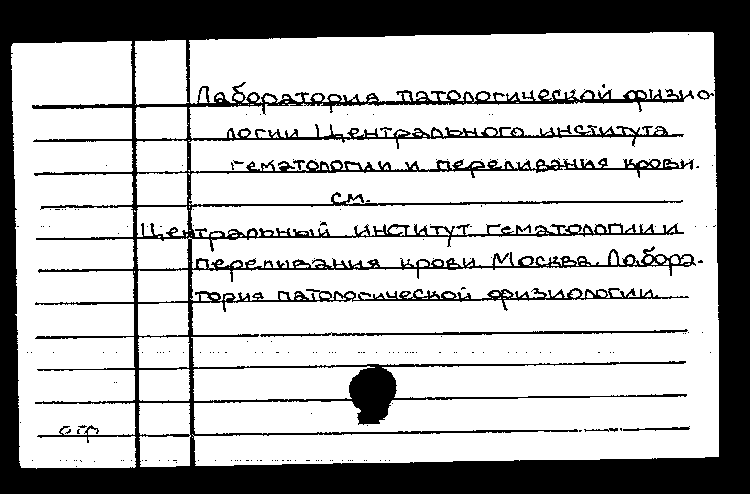 Лаборатория патологической физио-
логии Центрального института
гематологии и переливания крови.
см.
Центральный институт гематологии и
переливания крови. Москва. Лабора-
тория патологической физиологии.